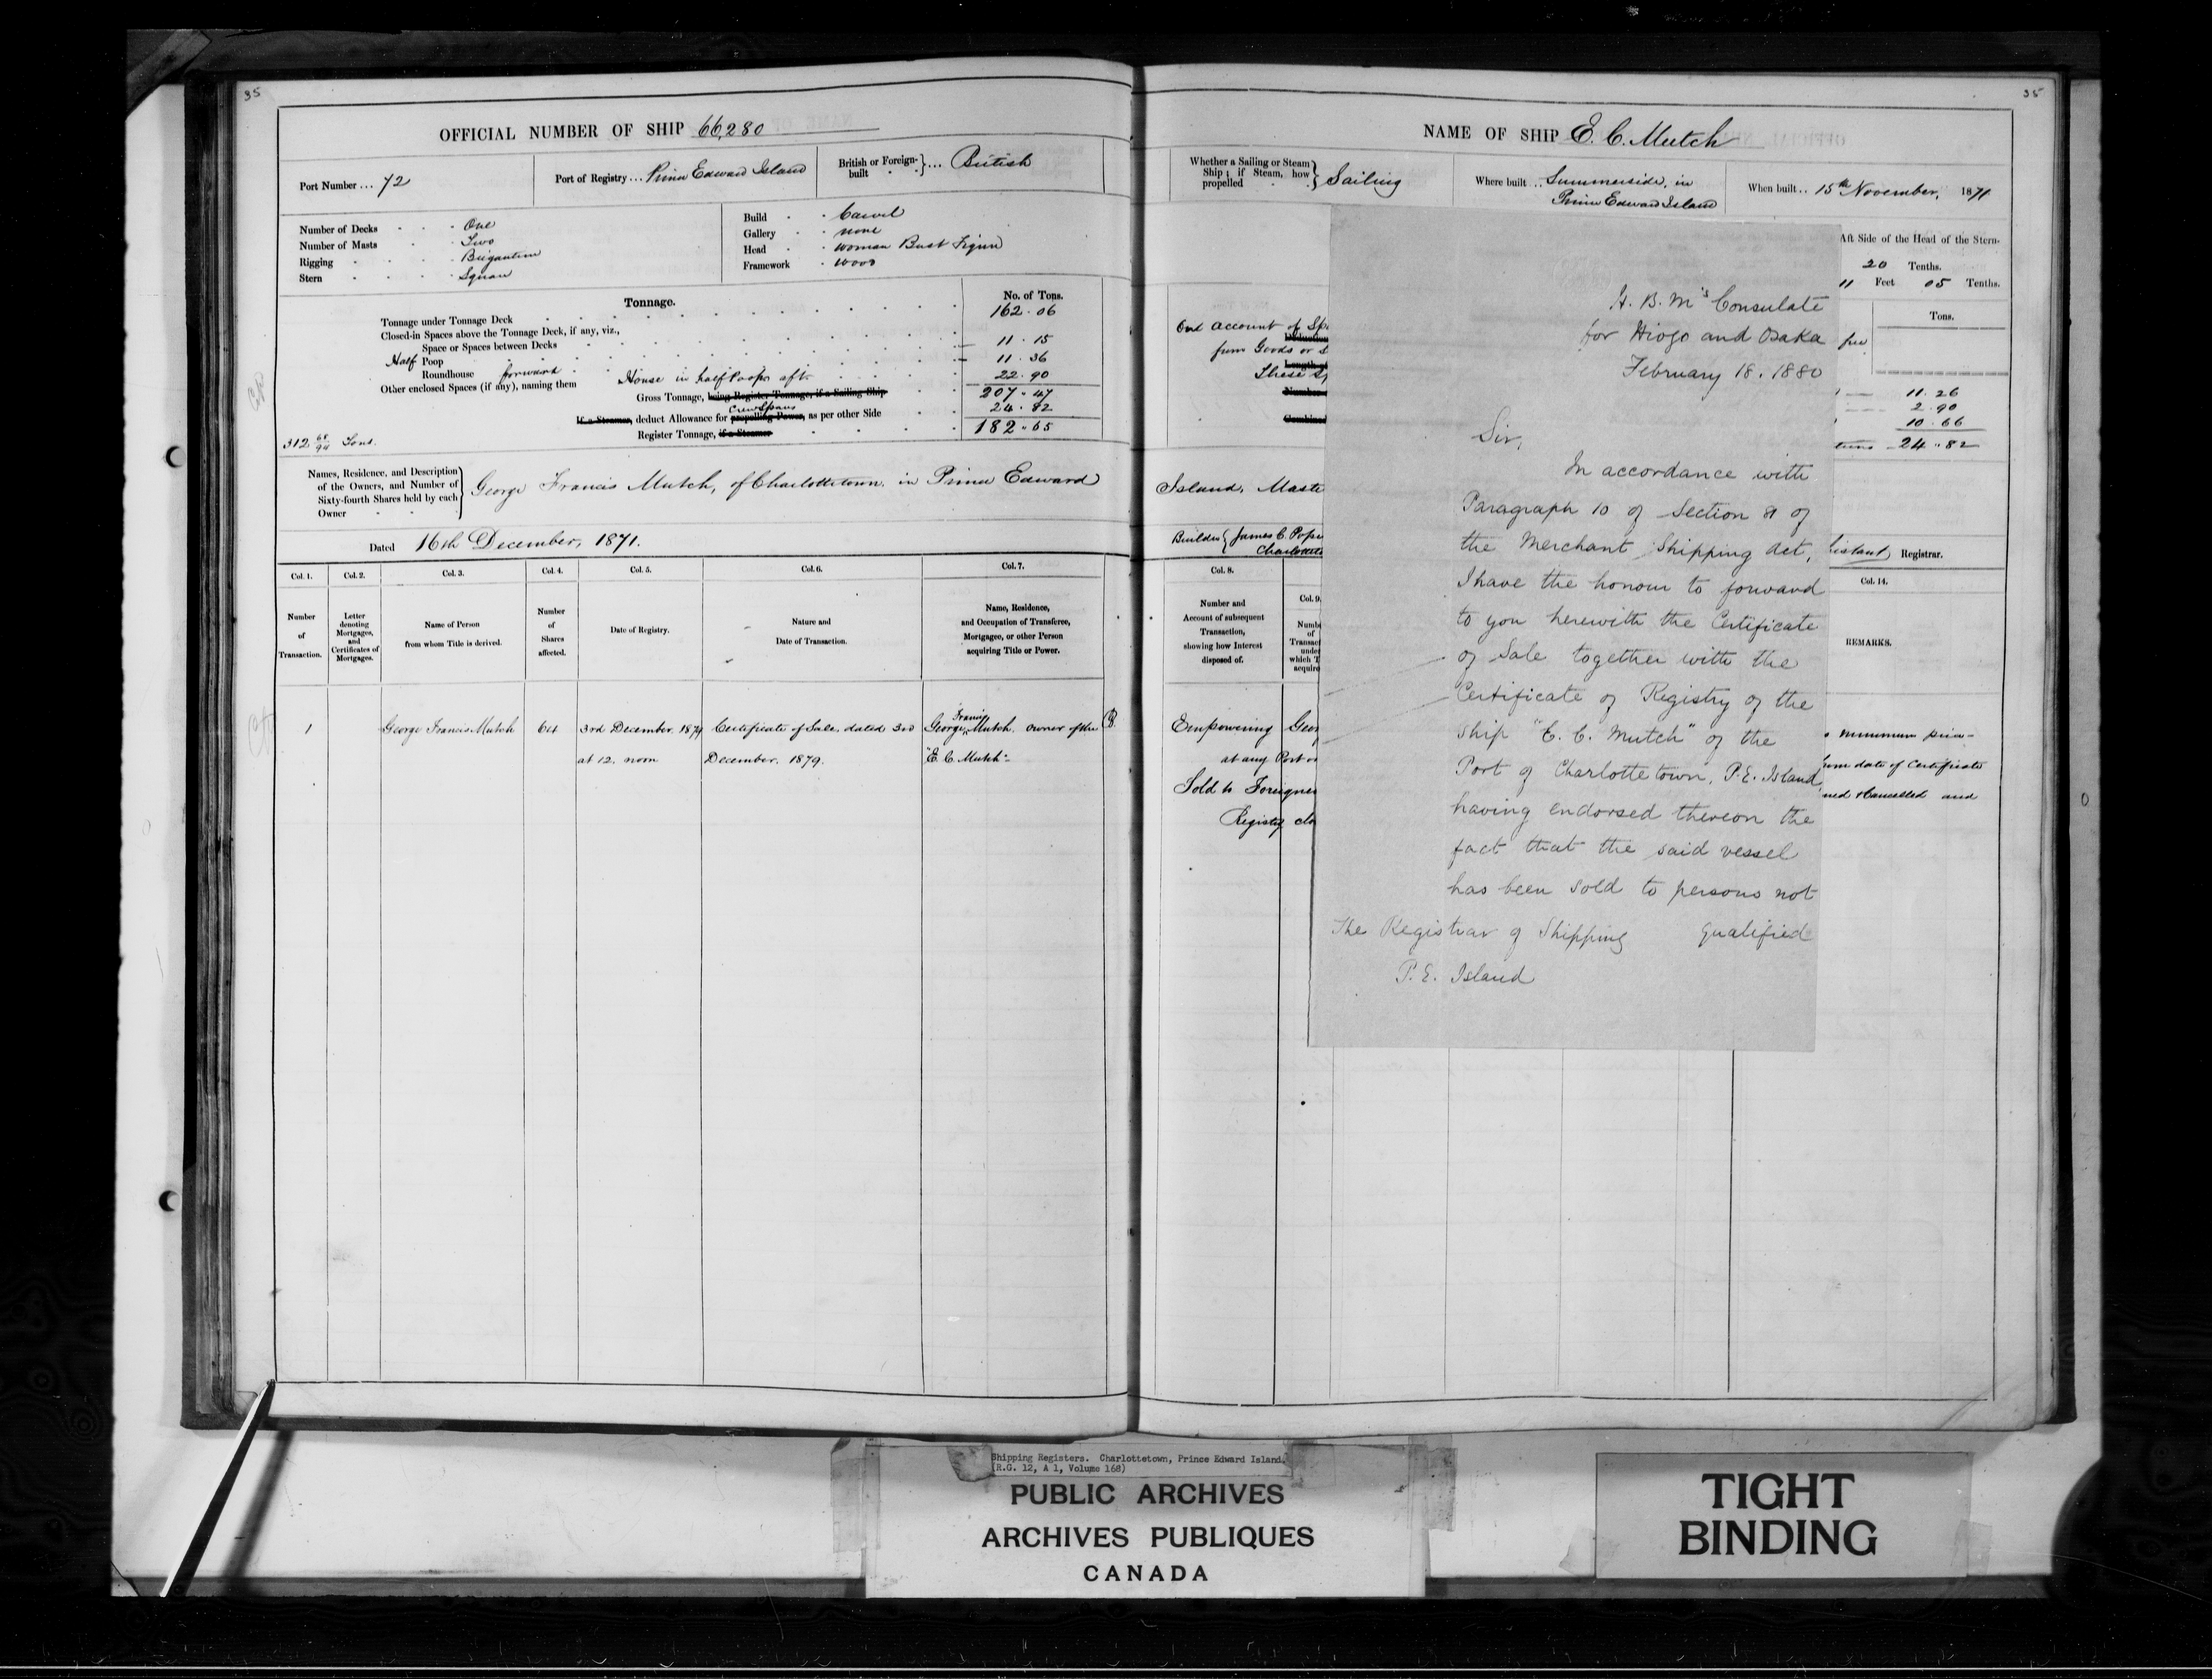 35
OFFICIAL NUMBER OF SHIP 66,280
Port Number ... 72
Port of Registry ... Prince Edward Island
British or Foreign-built ... British
Number of Decks One
Number of Masts Two
Rigging Brigantine
Stern Square
Build Carvel
Gallery none
Head Woman Bust Figure
Framework Wood
Tonnage.
No. of Tons.
Tonnage under Tonnage Deck 162.06
Closed-in Spaces above the Tonnage Deck, if any, viz.,
Space or Spaces between Decks
Half Poop 11.15
Roundhouse forward 11.36
Other enclosed Spaces (if any), naming them House in half Poop aft 22.90
Gross Tonnage, being Register Tonnage, if a Sailing Ship 207.47
Crew Spaces
If a Steamer, deduct Allowance for propelling Power, as per other Side 24.82
Register Tonnage, if a Steamer 182.65
312 68/94 Tons.
Names, Residence, and Description of the Owners, and Number of Sixty-fourth Shares held by each Owner
George Francis Mutch, of Charlottetown, in Prince Edward
Dated 16th December, 1871.
Col. 1. Col. 2. Col. 3. Col. 4. Col. 5. Col. 6. Col. 7.
Number of Transaction.
Letter denoting Mortgages, and Certificates of Mortgages.
Name of Person from whom Title is derived.
Number of Shares affected.
Date of Registry.
Nature and Date of Transaction.
Name, Residence, and Occupation of Transferee, Mortgagee, or other Person acquiring Title or Power.
1 George Francis Mutch 64 3rd December 1879 Certificate of Sale, dated 3rd George Francis Mutch owner of the
at 12. noon December. 1879. "E. C. Mutch".
35
NAME OF SHIP E. C. Mutch
Whether a Sailing or Steam Ship; if Steam, how propelled Sailing
Where built .. Summerside, in
Prince Edward Island
When built .. 15th November, 1871
Aft Side of the Head of the Stern-
20 Tenths.
11 Feet 05 Tenths.
Tons.
On account of
from Goods or
These
11.26
2.90
10.66
24.82
Island, Maste
Builder James C. Pope
Charlotte
Registrar.
Col. 8.
Col. 9
Col. 14.
Number and Account of subsequent Transaction, showing how Interest disposed of.
REMARKS.
Empowering Geor
at any Port
Sold to Foreigner
Registry clo
minimum price
date of Certificate
Cancelled and
H. B. M's Consulate
for Hiogo and Osaka
February 18. 1880
Sir,
In accordance with
Paragraph 10 of Section 81 of
the Merchant Shipping Act,
I have the honour to forward
to you herewith the Certificate
of Sale together with the
Certificate of Registry of the
Ship "E. C. Mutch" of the
Port of Charlottetown, P. E. Island,
having endorsed thereon the
fact that the said vessel
has been sold to persons not
The Registrar of Shipping qualified
P. E. Island
Shipping Registers. Charlottetown, Prince Edward Island.
(R.G. 12, A 1, Volume 168)
PUBLIC ARCHIVES
ARCHIVES PUBLIQUES
CANADA
TIGHT
BINDING